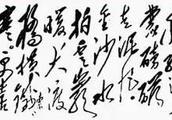 蒙磅礴
走泥丸
金沙水
拍雲崖
暖大渡
橋横鐵索
寒更喜